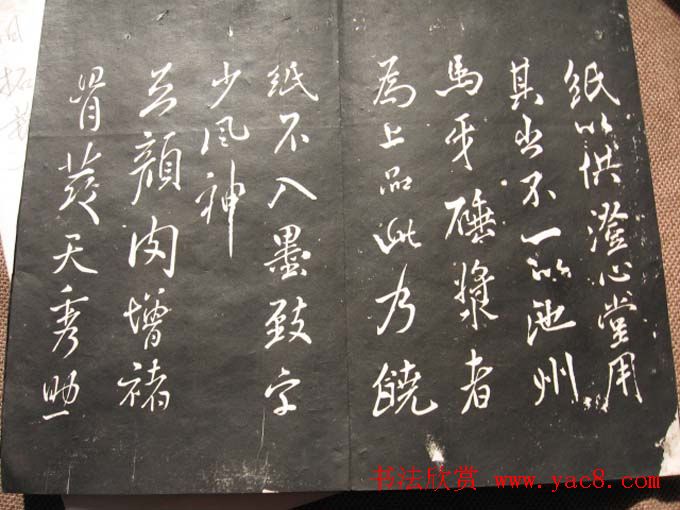 紙以供澄心堂用
其出不一以池州
馬牙硾漿者
為上品此乃饒
紙不入墨致字
少風神
顏肉增褚
骨天秀助
书法欣赏 www.yac8.com